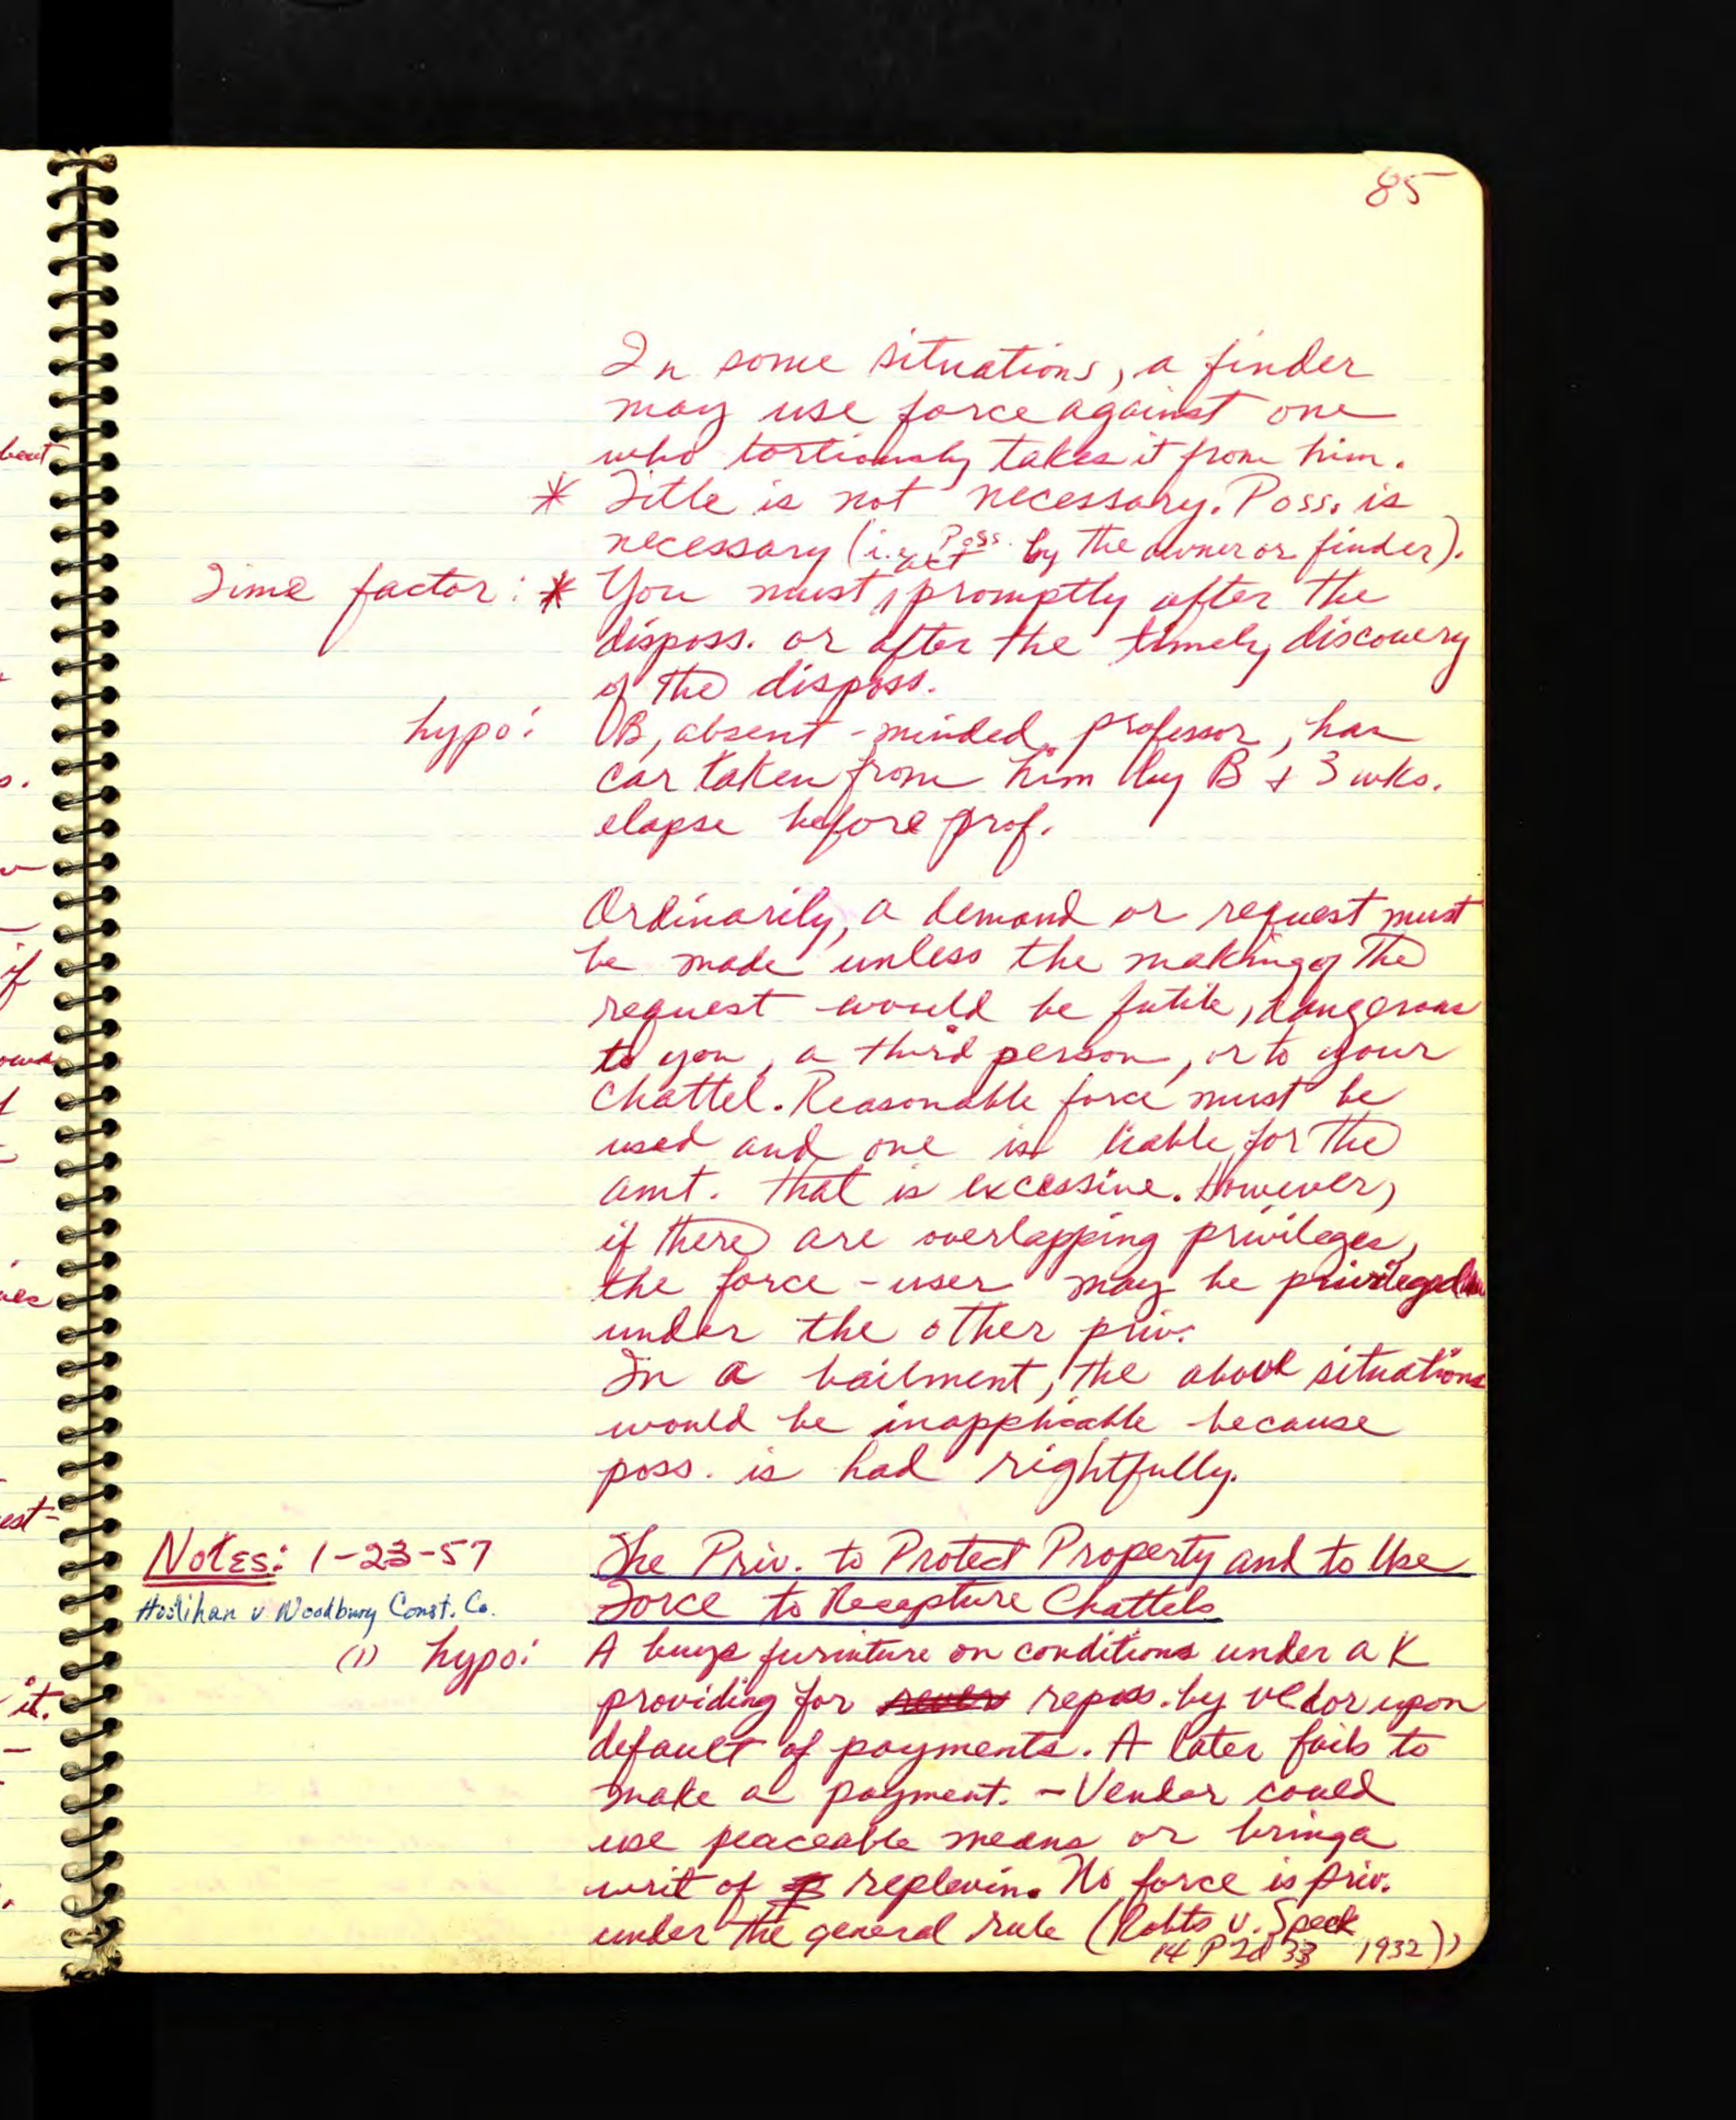 85
In some situations, a finder
may use force against one
who tortiously takes it from him.
* Title is not necessary. Poss. is
necessary (i.e. Poss. by the owner or finder).
Time factor: * You must act promptly after the
disposs. or after the timely discovery
of the disposs.
hypo: B, absent-minded professor, has
car taken from him by B + 3 wks.
elapse before prof.
Ordinarily, a demand or request must
be made unless the making of the
request would be futile, dangerous
to you, a third person, or to your
chattel. Reasonable force must be
used and one is liable for the
amt. that is excessive. However,
if there are overlapping privileges,
the force-user may be privileged
under the other priv.
In a bailment, the above situations
would be inapplicable because
poss. is had rightfully.
Notes: 1-23-57 The Priv. to Protect Property and to Use
Houlihan v Woodbury Const. Co. Force to Recapture Chattels
(1) hypo: A buys furniture on conditions under a K
providing for reposs. by vedor upon
default of payments. A later fails to
make a payment. - Vendor could
use peaceable means or bring a
writ of replevin. No force is priv.
under the general rule (Robts v. Speck
14 P 2d 33 1932))